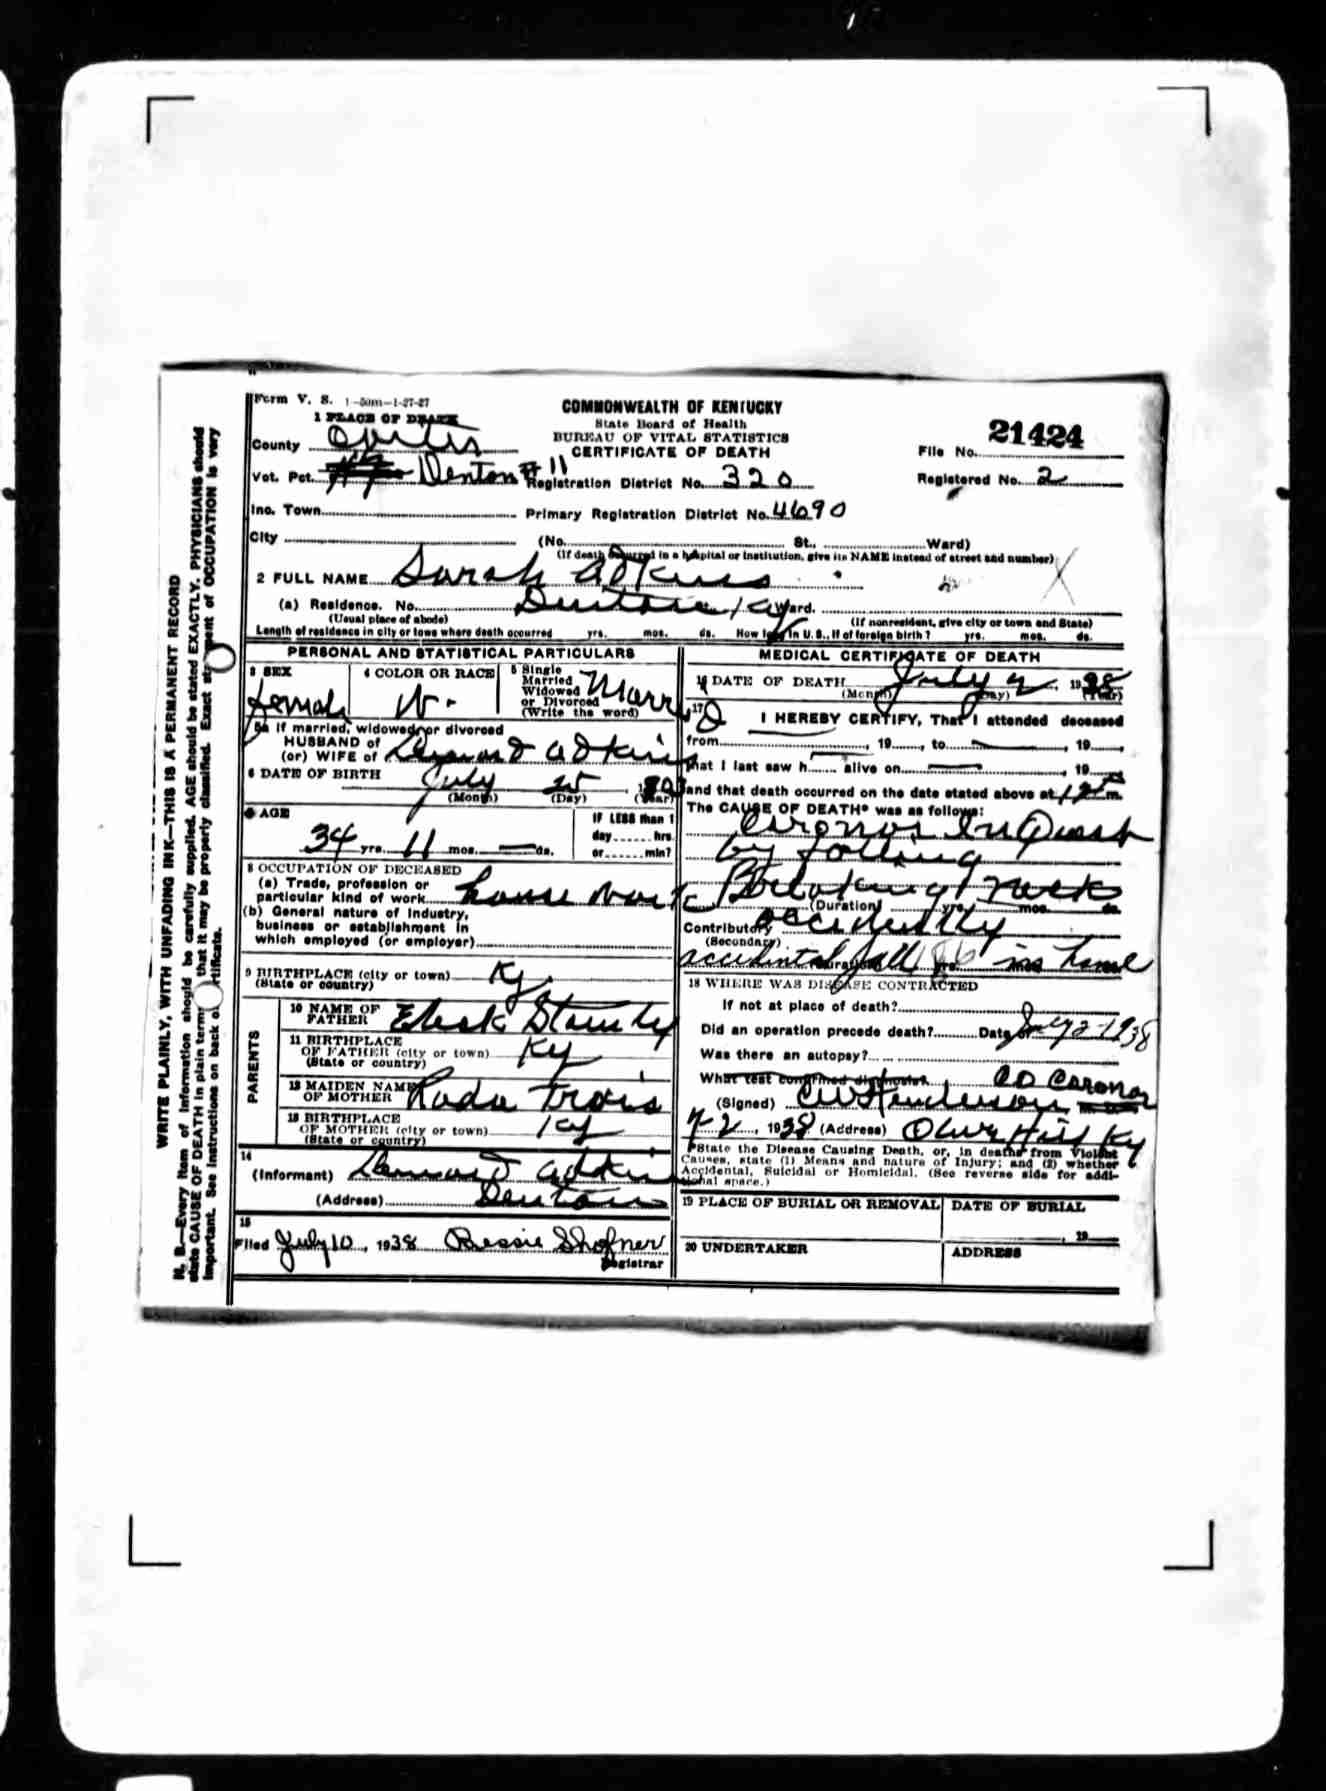 Form V. S. 1-50m-1-27-27
COMMONWEALTH OF KENTUCKY
State Board of Health
BUREAU OF VITAL STATISTICS
CERTIFICATE OF DEATH
1 PLACE OF DEATH
County
Vot. Pct. Denton #11
Inc. Town
City
Registration District No. 320
Primary Registration District No. 4690
(No. St., Ward)
(If death occurred in a hospital or institution, give its NAME instead of street and number)
File No. 21424
Registered No. 2
2 FULL NAME Sarah Adkins
(a) Residence. No. Denton Ky Ward.
(Usual place of abode) (If nonresident, give city or town and State)
Length of residence in city or town where death occurred yrs. mos. ds. How long in U. S., if of foreign birth? yrs. mos. ds.
PERSONAL AND STATISTICAL PARTICULARS
3 SEX
Female
4 COLOR OR RACE
W.
5 Single
Married
Widowed
or Divorced
(Write the word)
Married
5a If married, widowed, or divorced
HUSBAND of
(or) WIFE of Adkins
6 DATE OF BIRTH July 25, 1903
(Month) (Day) (Year)
AGE
34 yrs. 11 mos. ds.
IF LESS than 1
day hrs.
or min?
8 OCCUPATION OF DECEASED
(a) Trade, profession or
particular kind of work house work
(b) General nature of industry,
business or establishment in
which employed (or employer)
9 BIRTHPLACE (city or town) Ky.
(State or country)
PARENTS
10 NAME OF
FATHER
11 BIRTHPLACE
OF FATHER (city or town) Ky
(State or country)
12 MAIDEN NAME
OF MOTHER
13 BIRTHPLACE
OF MOTHER (city or town) Ky
(State or country)
14
(Informant) Adkins
(Address) Denton
15
Filed July 10, 1938 Bessie Shofner
Registrar
MEDICAL CERTIFICATE OF DEATH
16 DATE OF DEATH July 2, 1938
(Month) (Day) (Year)
17
I HEREBY CERTIFY, That I attended deceased
from , 19 , to , 19
that I last saw h alive on , 19
and that death occurred on the date stated above at 12 m.
The CAUSE OF DEATH* was as follows:
InQuest
by falling
Breaking neck
(Duration) yrs. mos. ds.
Contributory
(Secondary)
accidental fall 186 in home
18 WHERE WAS DISEASE CONTRACTED
If not at place of death?
Did an operation precede death? Date of July 2-1938
Was there an autopsy?
What test confirmed diagnosis? CO Caronor
(Signed) CW Henderson
7-2, 1938 (Address) Olive Hill Ky
*State the Disease Causing Death, or, in deaths from Violent
Causes, state (1) Means and nature of Injury; and (2) whether
Accidental, Suicidal or Homicidal. (See reverse side for addi-
tional space.)
19 PLACE OF BURIAL OR REMOVAL
DATE OF BURIAL
19
20 UNDERTAKER
ADDRESS
WRITE PLAINLY, WITH UNFADING INK—THIS IS A PERMANENT RECORD
N. B.—Every item of information should be carefully supplied. AGE should be stated EXACTLY. PHYSICIANS should
state CAUSE OF DEATH in plain terms that it may be properly classified. Exact statement of OCCUPATION is very
important. See instructions on back of certificate.